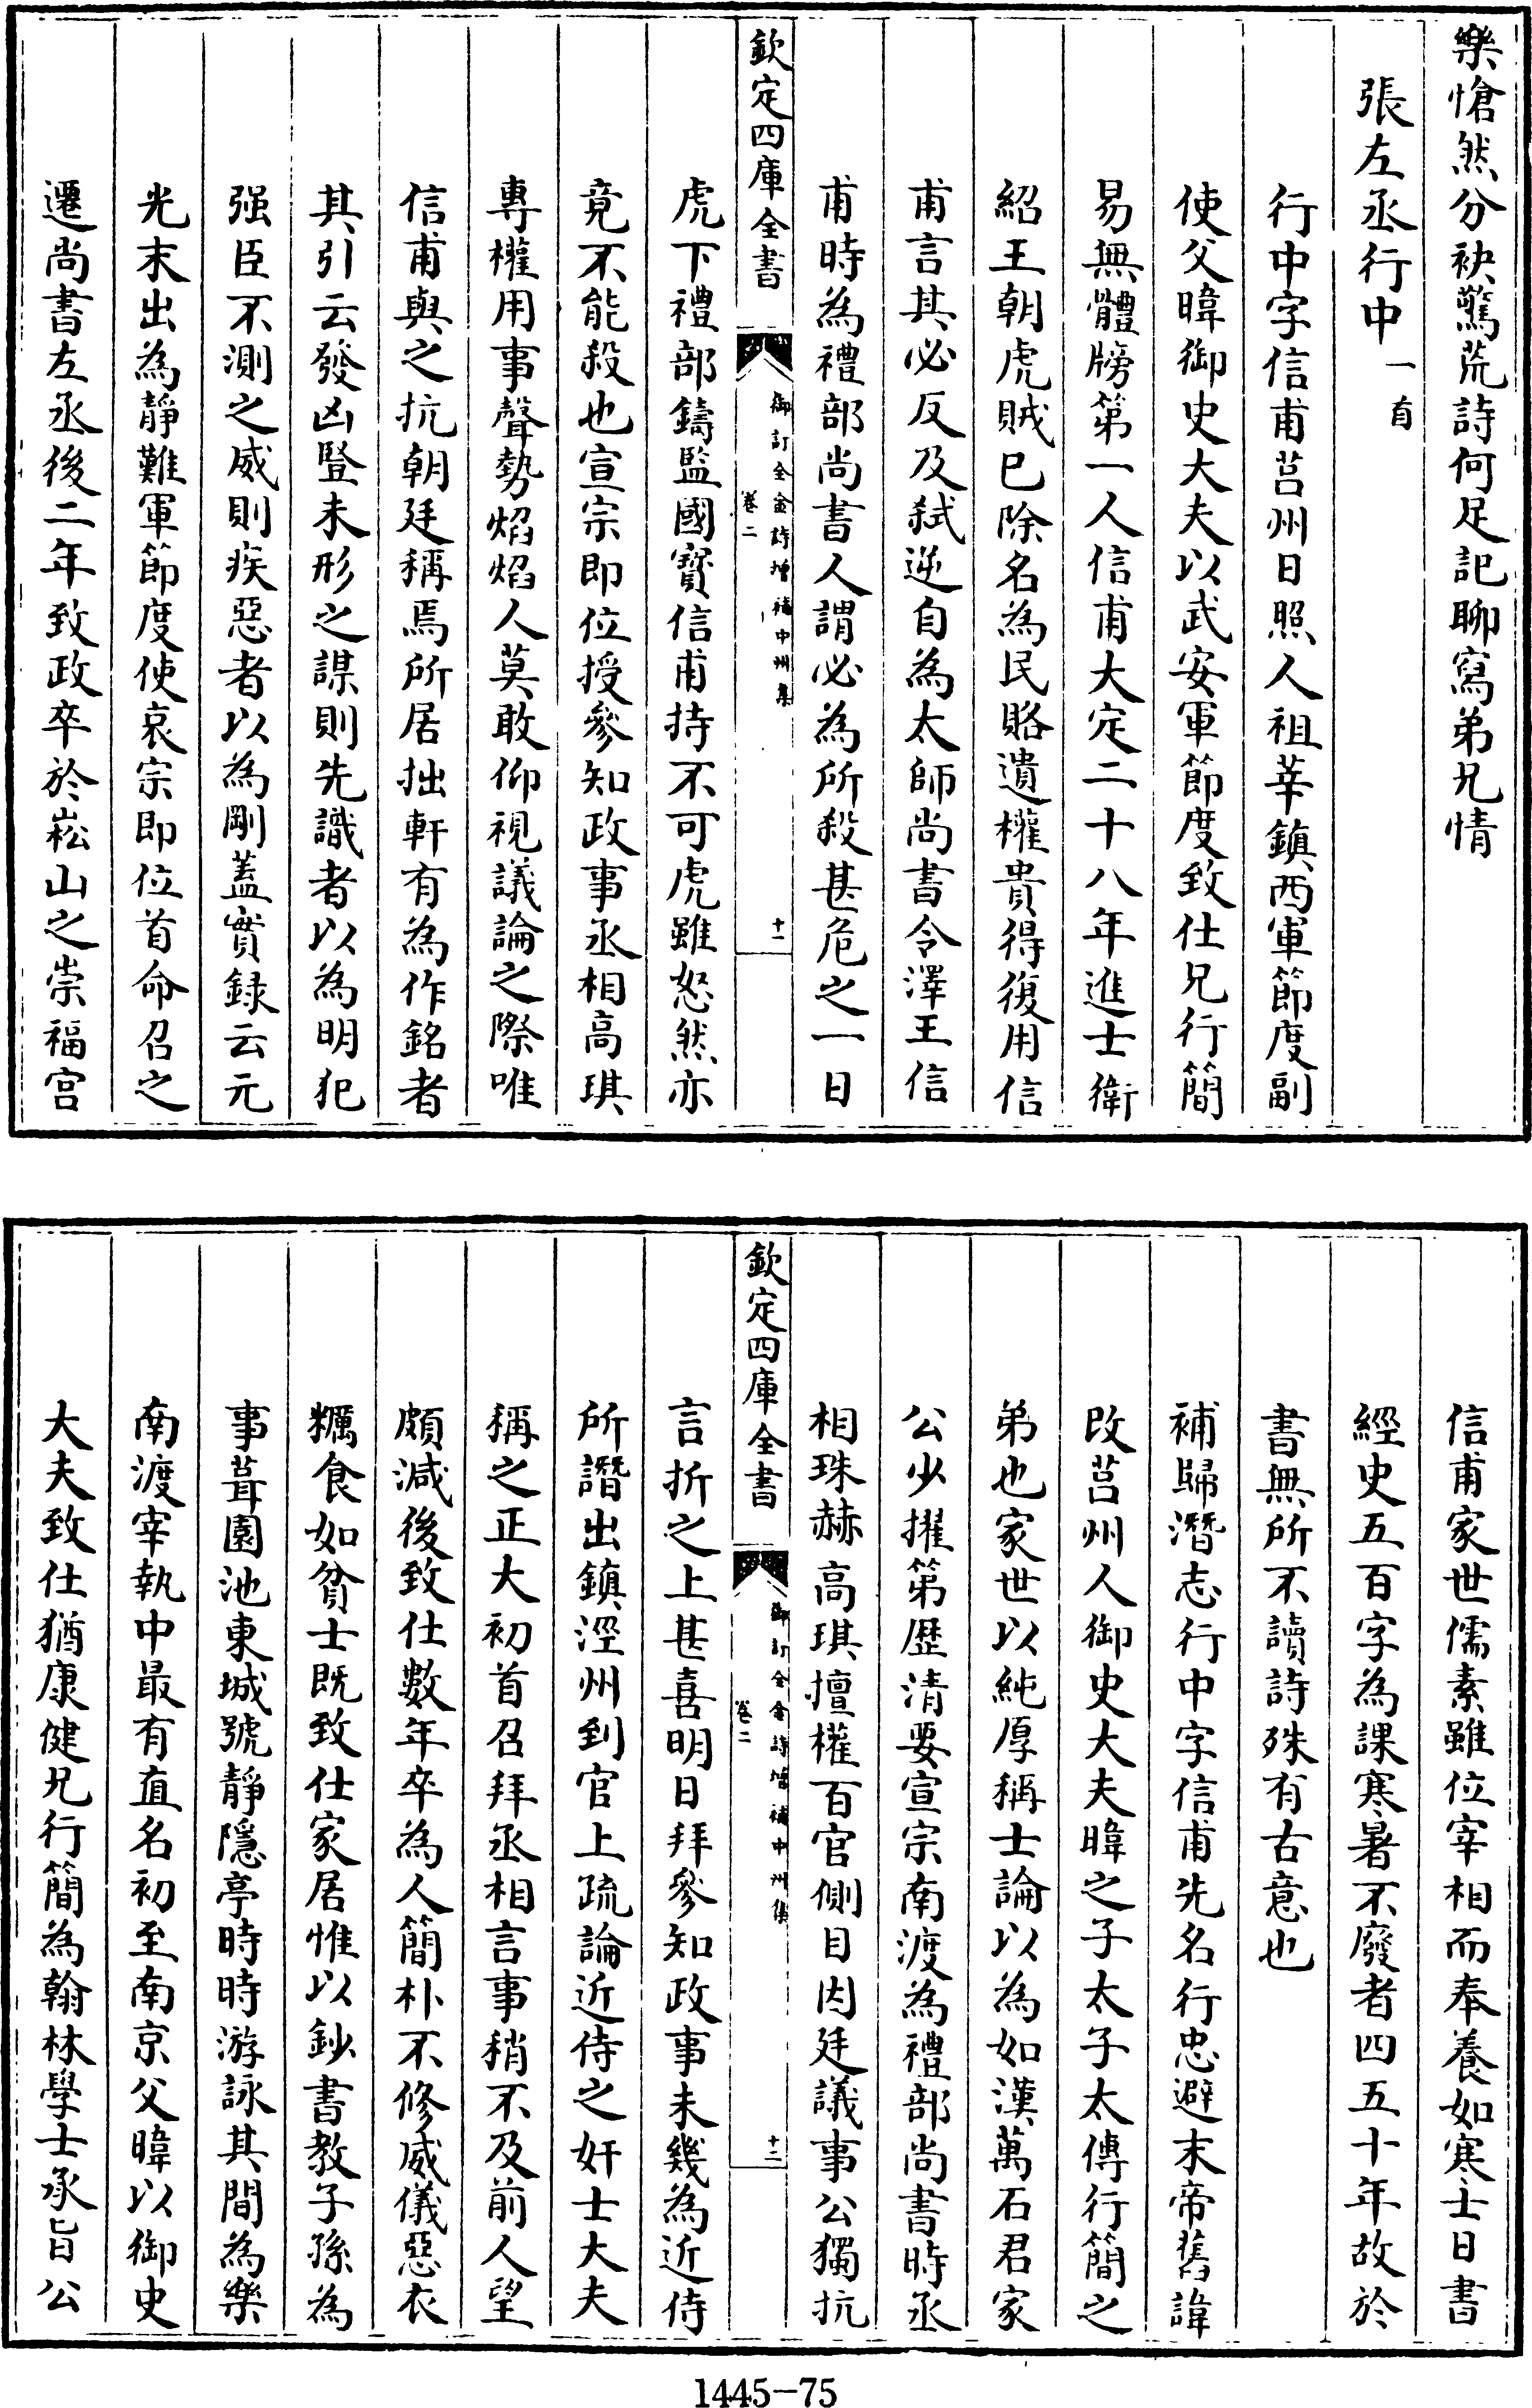 樂愴然分袂驚荒詩何足記聊寫弟兄情
張左丞行中一首
行中字信甫莒州日照人祖莘鎮西軍節度副
使父暐御史大夫以武安軍節度致仕兄行簡
易無體牓第一人信甫大定二十八年進士衛
紹王朝虎賊已除名為民賂遺權貴得復用信
甫言其必反及弑逆自為太師尚書令澤王信
甫時為禮部尚書人謂必為所殺甚危之一日
欽定四庫全書
御訂全金詩增補中州集
卷二
十一
虎下禮部鑄監國寳信甫持不可虎雖怒然亦
竟不能殺也宣宗即位授參知政事丞相高琪
專權用事聲勢焰焰人莫敢仰視議論之際唯
信甫與之抗朝廷稱焉所居拙軒有為作銘者
其引云發凶豎未形之謀則先識者以為明犯
强臣不測之威則疾惡者以為剛蓋實録云元
光末出為靜難軍節度使哀宗即位首命召之
遷尚書左丞後二年致政卒於崧山之崇福宫
信甫家世儒素雖位宰相而奉養如寒士日書
經史五百字為課寒暑不廢者四五十年故於
書無所不讀詩殊有古意也
補歸潛志行中字信甫先名行忠避末帝舊諱
改莒州人御史大夫暐之子太子太傅行簡之
弟也家世以純厚稱士論以為如漢萬石君家
公少擢第歷清要宣宗南渡為禮部尚書時丞
相珠赫高琪擅權百官側目因廷議事公獨抗
欽定四庫全書
御訂全金詩增補中州集
卷二
十二
言折之上甚喜明日拜參知政事未幾為近侍
所譖出鎮涇州到官上疏論近侍之奸士大夫
稱之正大初首召拜丞相言事稍不及前人望
頗減後致仕數年卒為人簡朴不修威儀惡衣
糲食如貧士既致仕家居惟以鈔書教子孫為
事葺園池東城號靜隱亭時時游詠其間為樂
南渡宰執中最有直名初至南京父暐以御史
大夫致仕猶康健兄行簡為翰林學士承旨公
1445-75